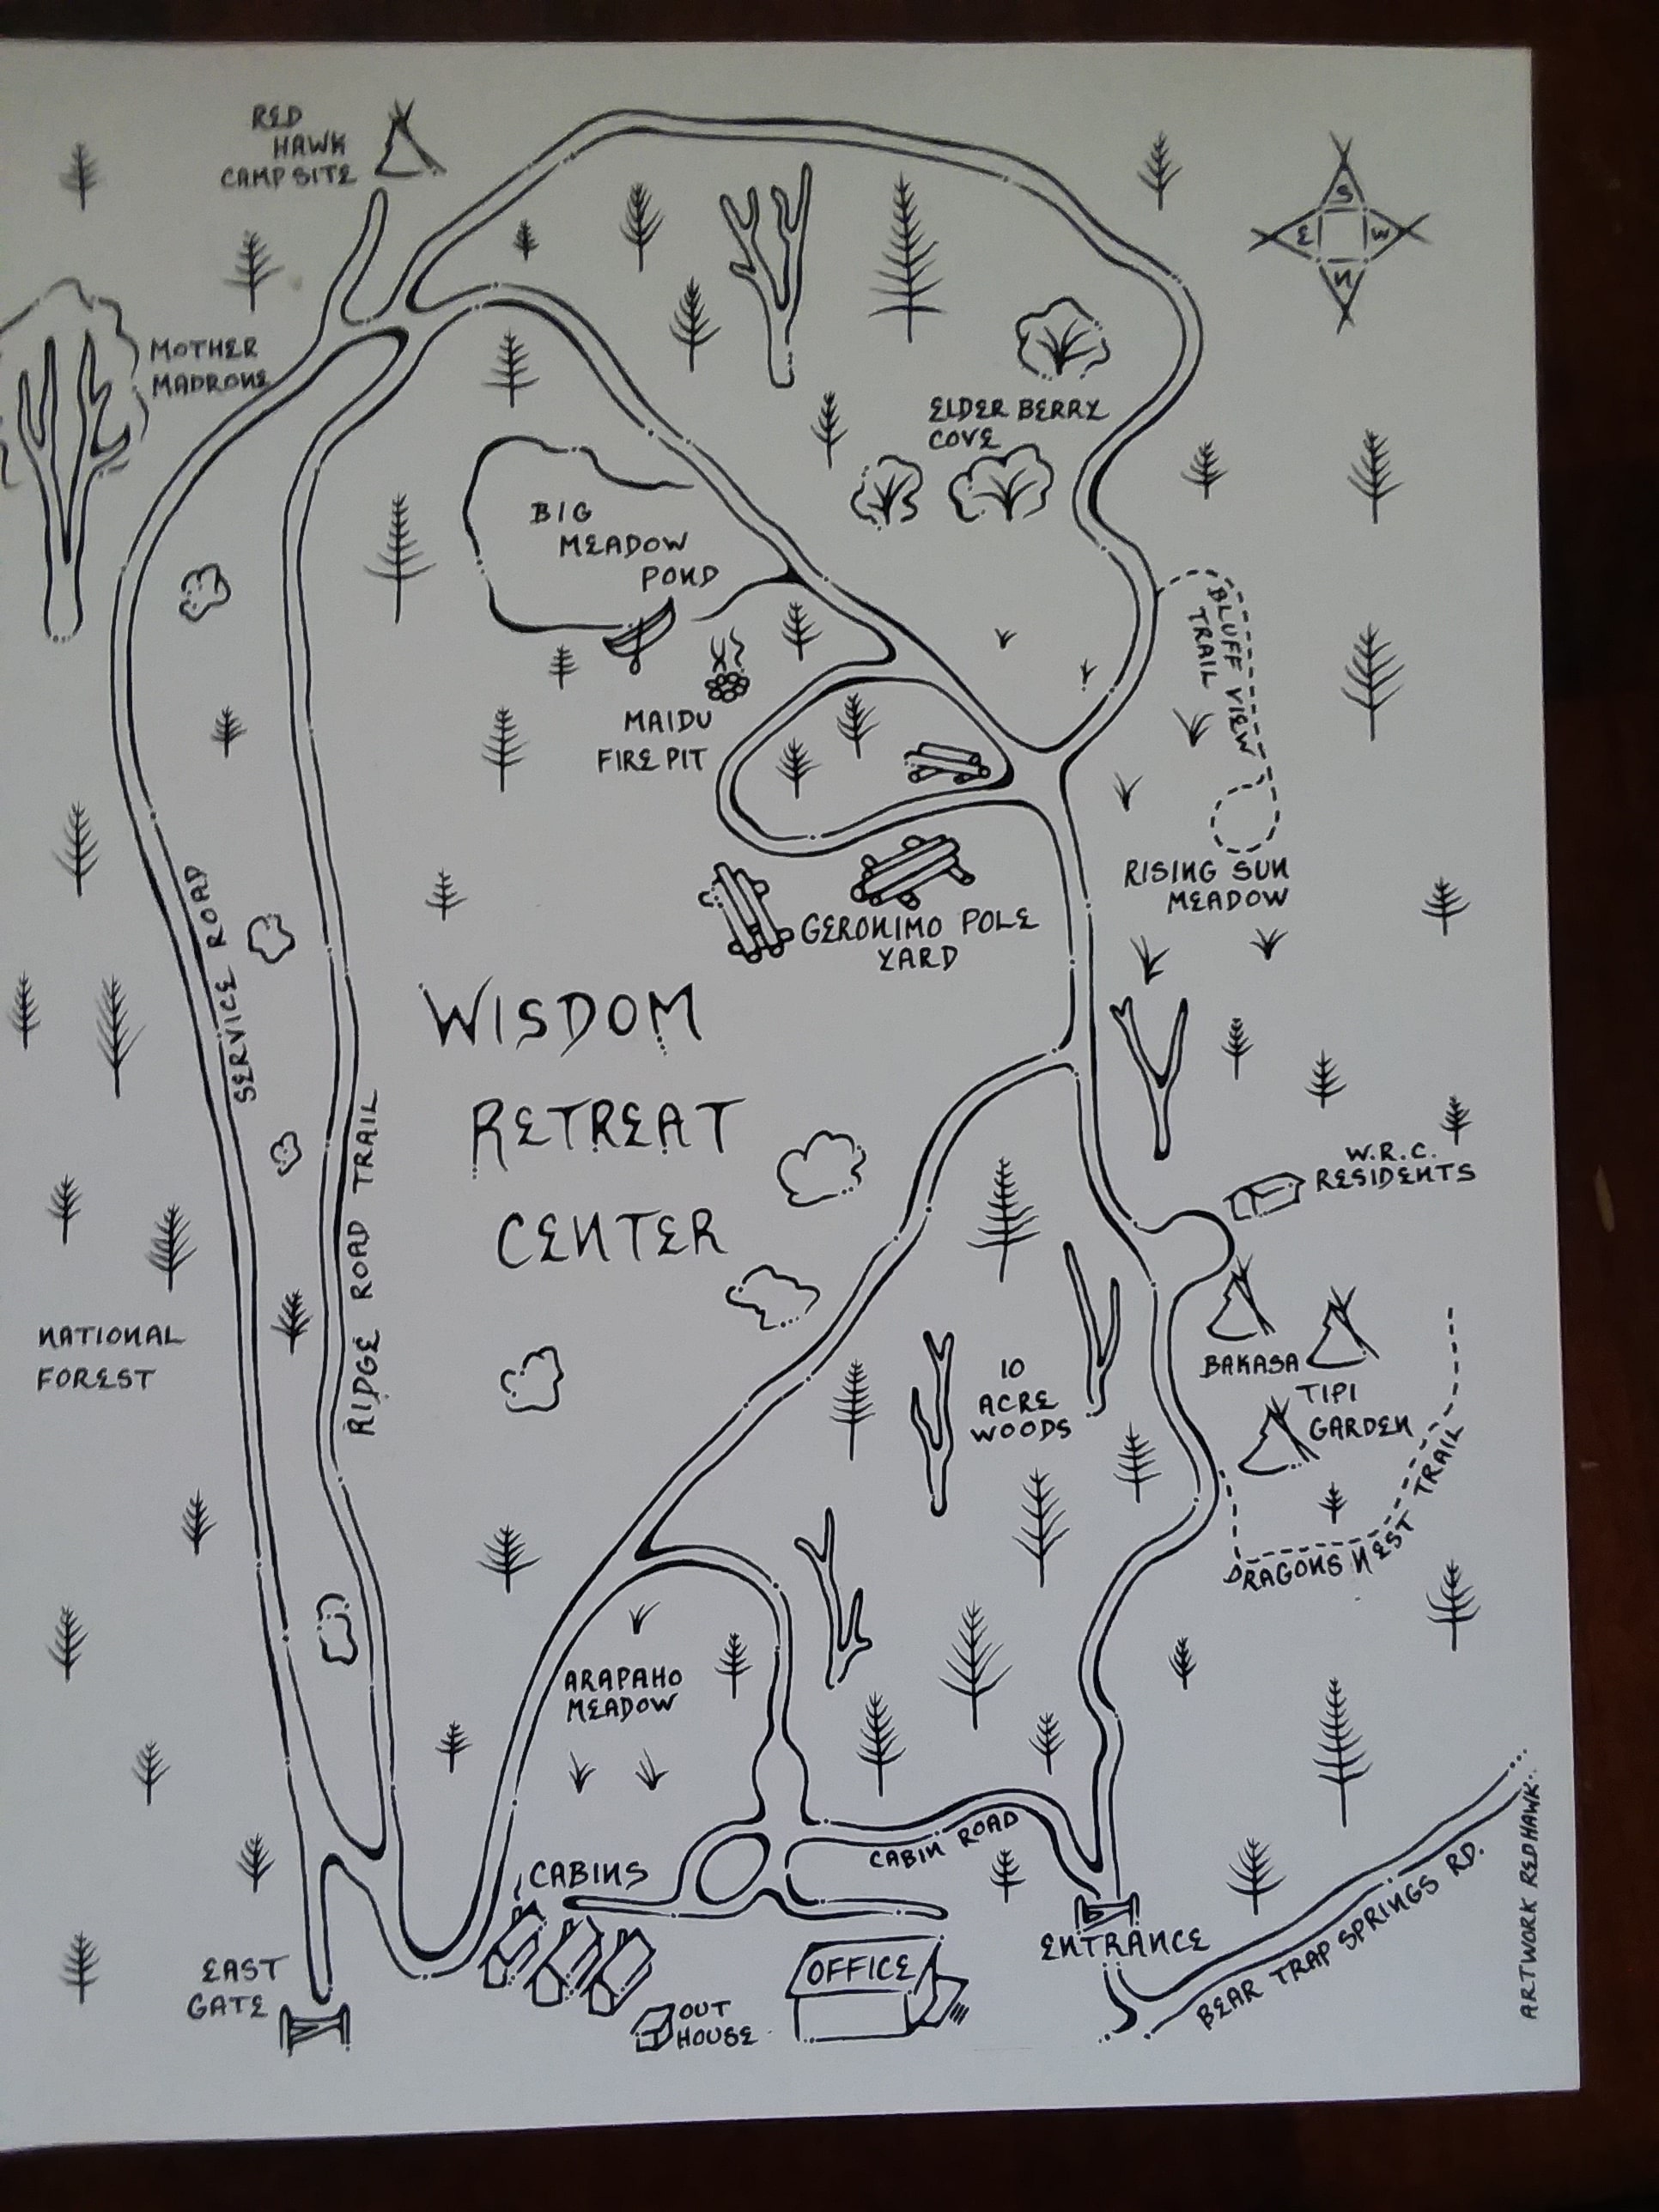 RED
HAWK
CAMPSITE
S
E W
N
MOTHER
MADRONE
ELDER BERRY
COVE
BIG
MEADOW
POND
BLUFF VIEW
TRAIL
MAIDU
FIRE PIT
RISING SUN
MEADOW
GERONIMO POLE
YARD
SERVICE ROAD
WISDOM
RETREAT
CENTER
RIDGE ROAD TRAIL
W.R.C.
RESIDENTS
NATIONAL
FOREST
BAKASA
TIPI
GARDEN
10
ACRE
WOODS
DRAGONS NEST TRAIL
ARAPAHO
MEADOW
CABIN ROAD
CABINS
ENTRANCE
OFFICE
EAST
GATE
OUT
HOUSE
BEAR TRAP SPRINGS RD.
ARTWORK REDHAWK